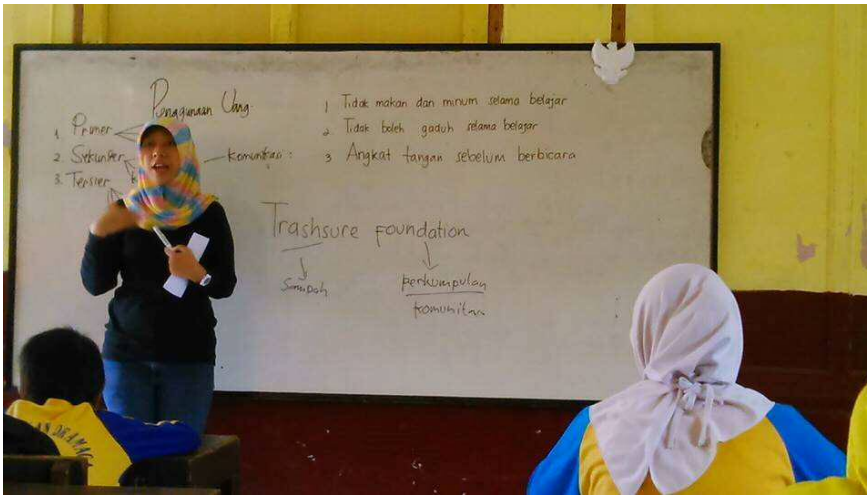 Penggunaan Uang
1. Primer
2. Sekunder
3. Tersier
komunikasi :
1 Tidak makan dan minum selama belajar
2. Tidak boleh gaduh selama belajar
3 Angkat tangan sebelum berbicara
Trashsure foundation
Sampah
perkumpulan
komunitas